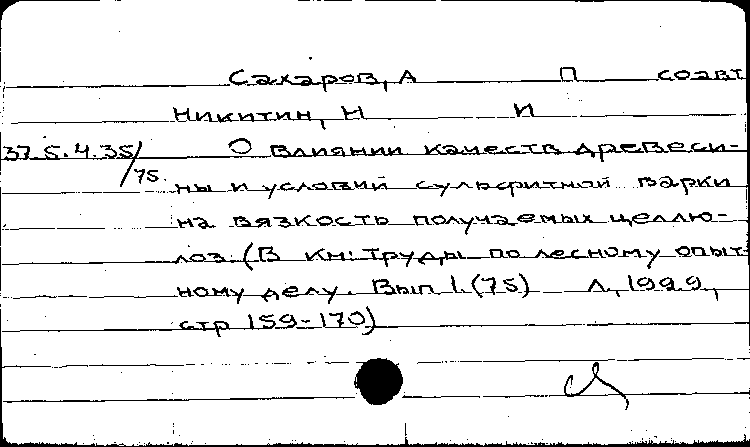 Сахаров, А П соавт
Никитин, Н И
37.5.4.35/75. О влиянии качеств древеси-
ны и условий сульфитной варки
на вязкость получаемых целлю-
лоз. (В кн: Труды по лесному опыт-
ному делу. Вып 1. (75) Л, 1929,
стр 159-170)